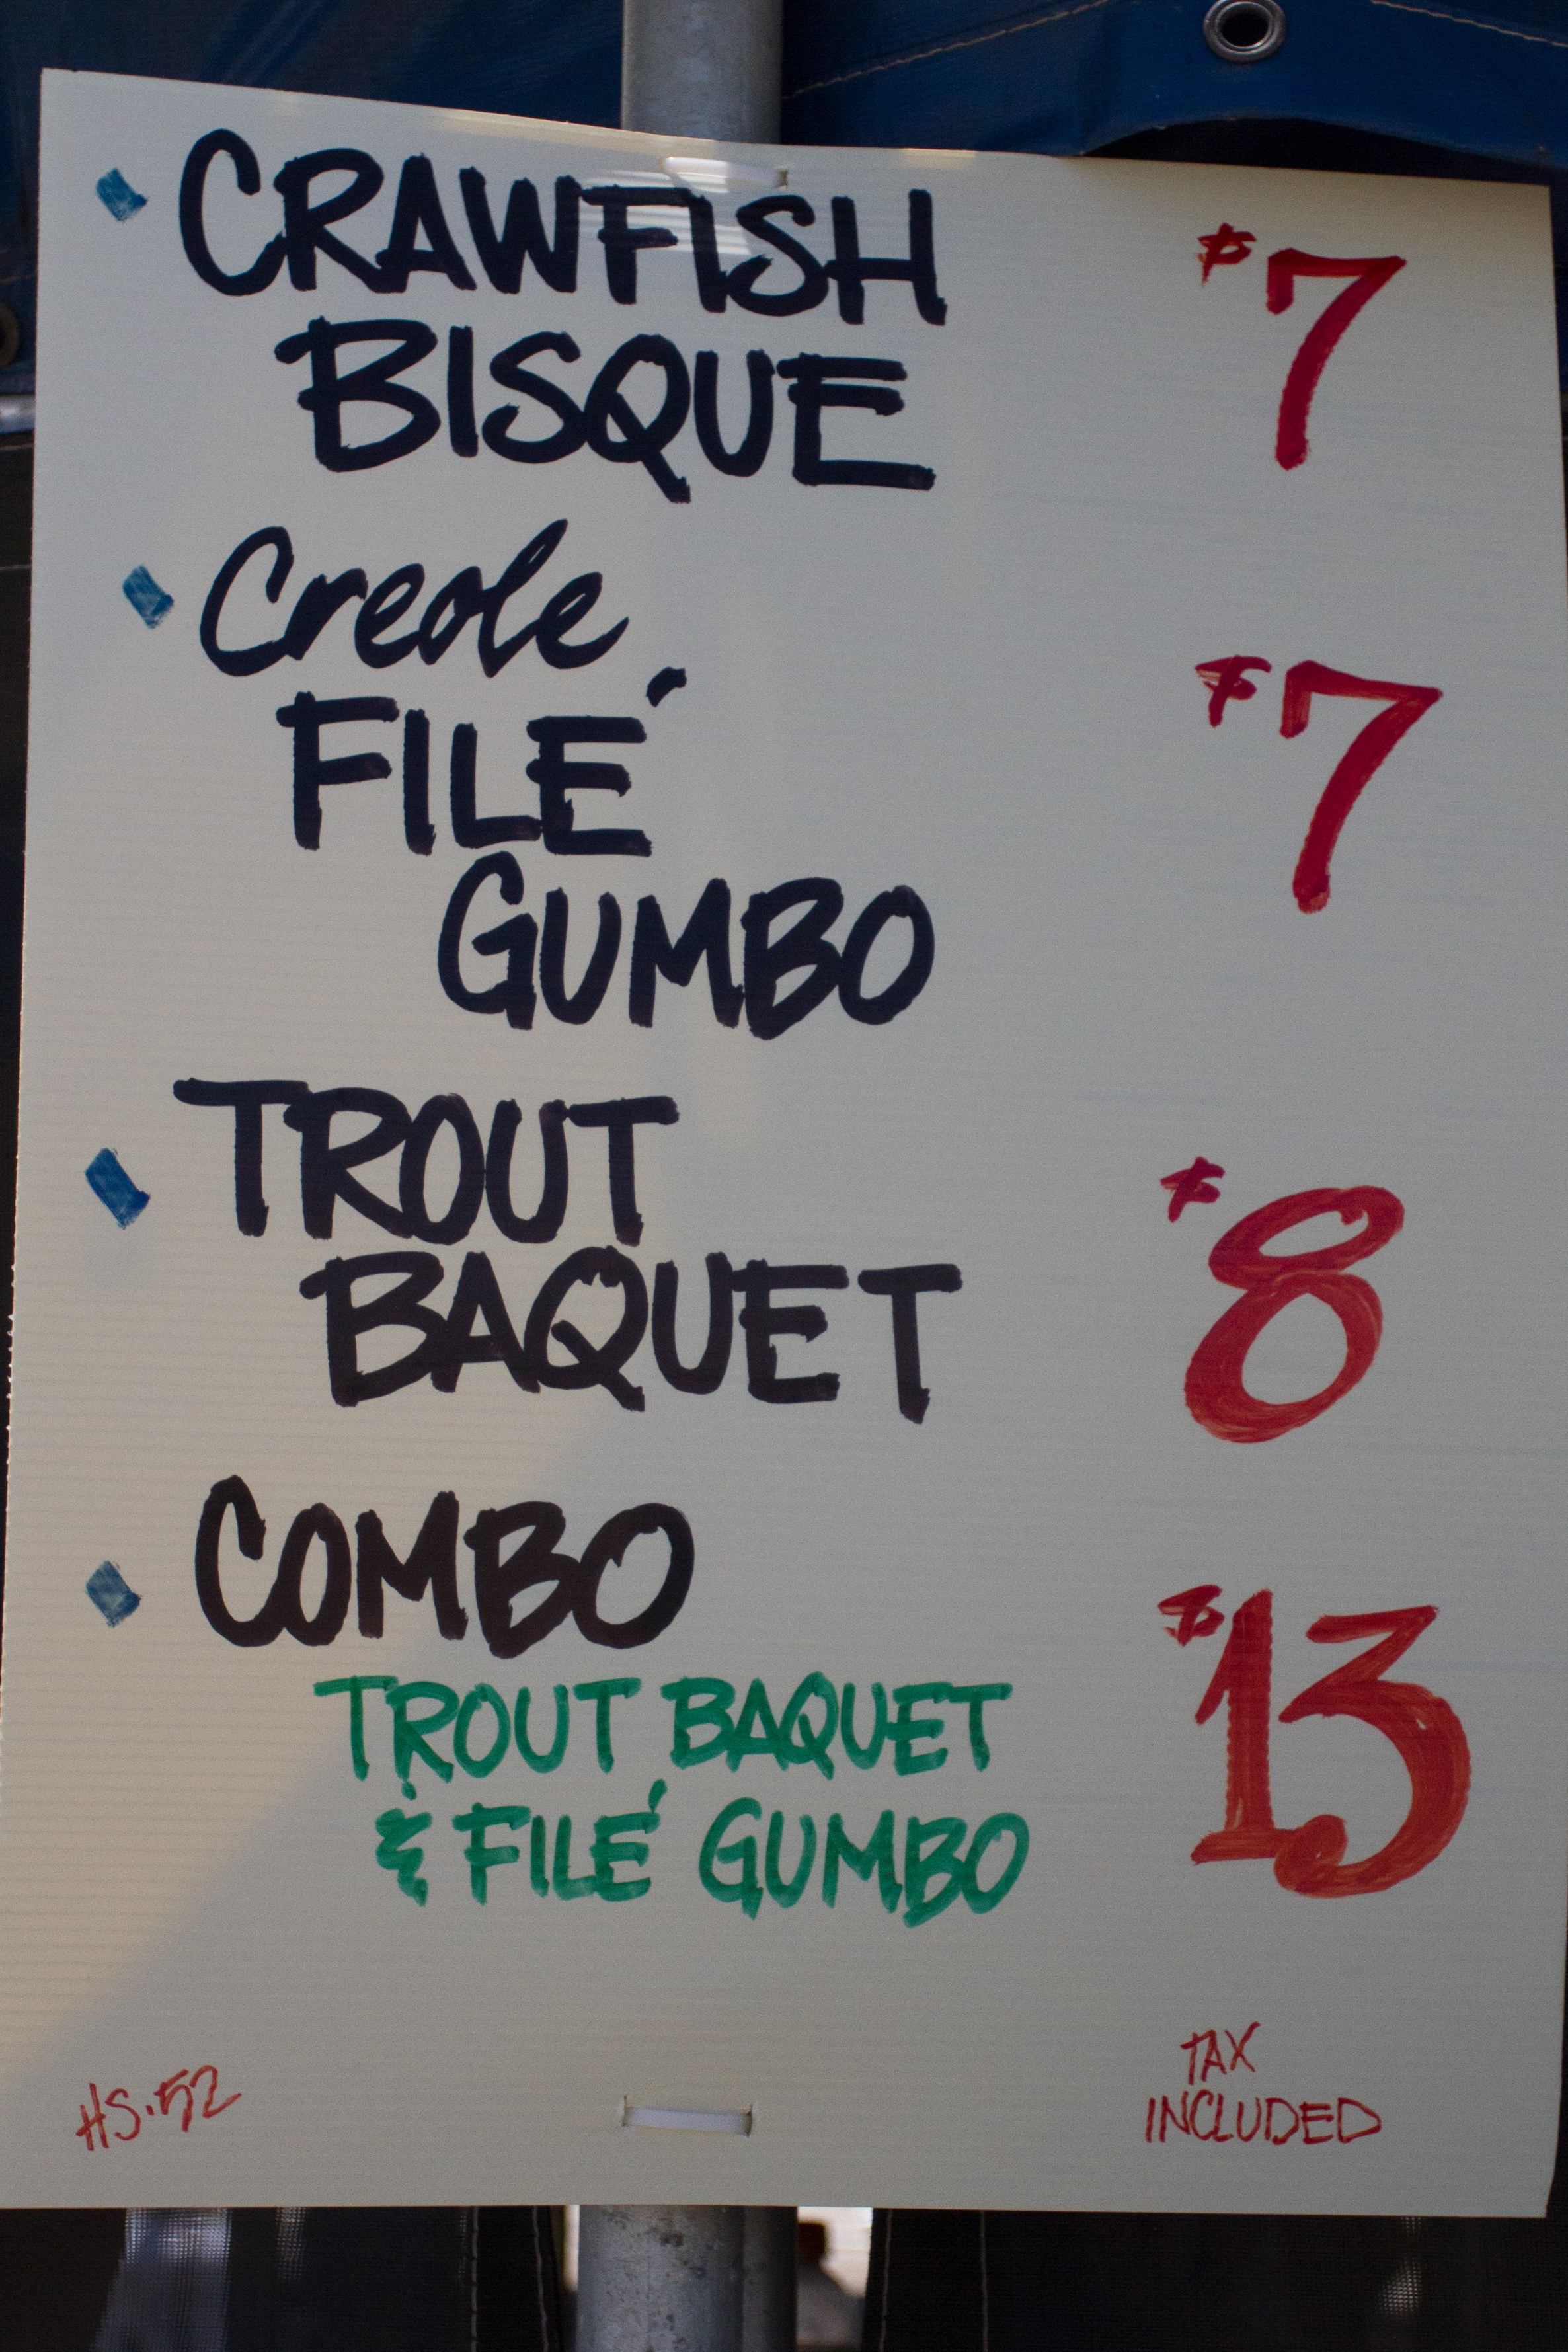 CRAWFISH $7
BISQUE
Creole
FILÉ $7
GUMBO
TROUT $8
BAQUET
COMBO $13
TROUT BAQUET
& FILÉ GUMBO
TAX
INCLUDED
HS.52